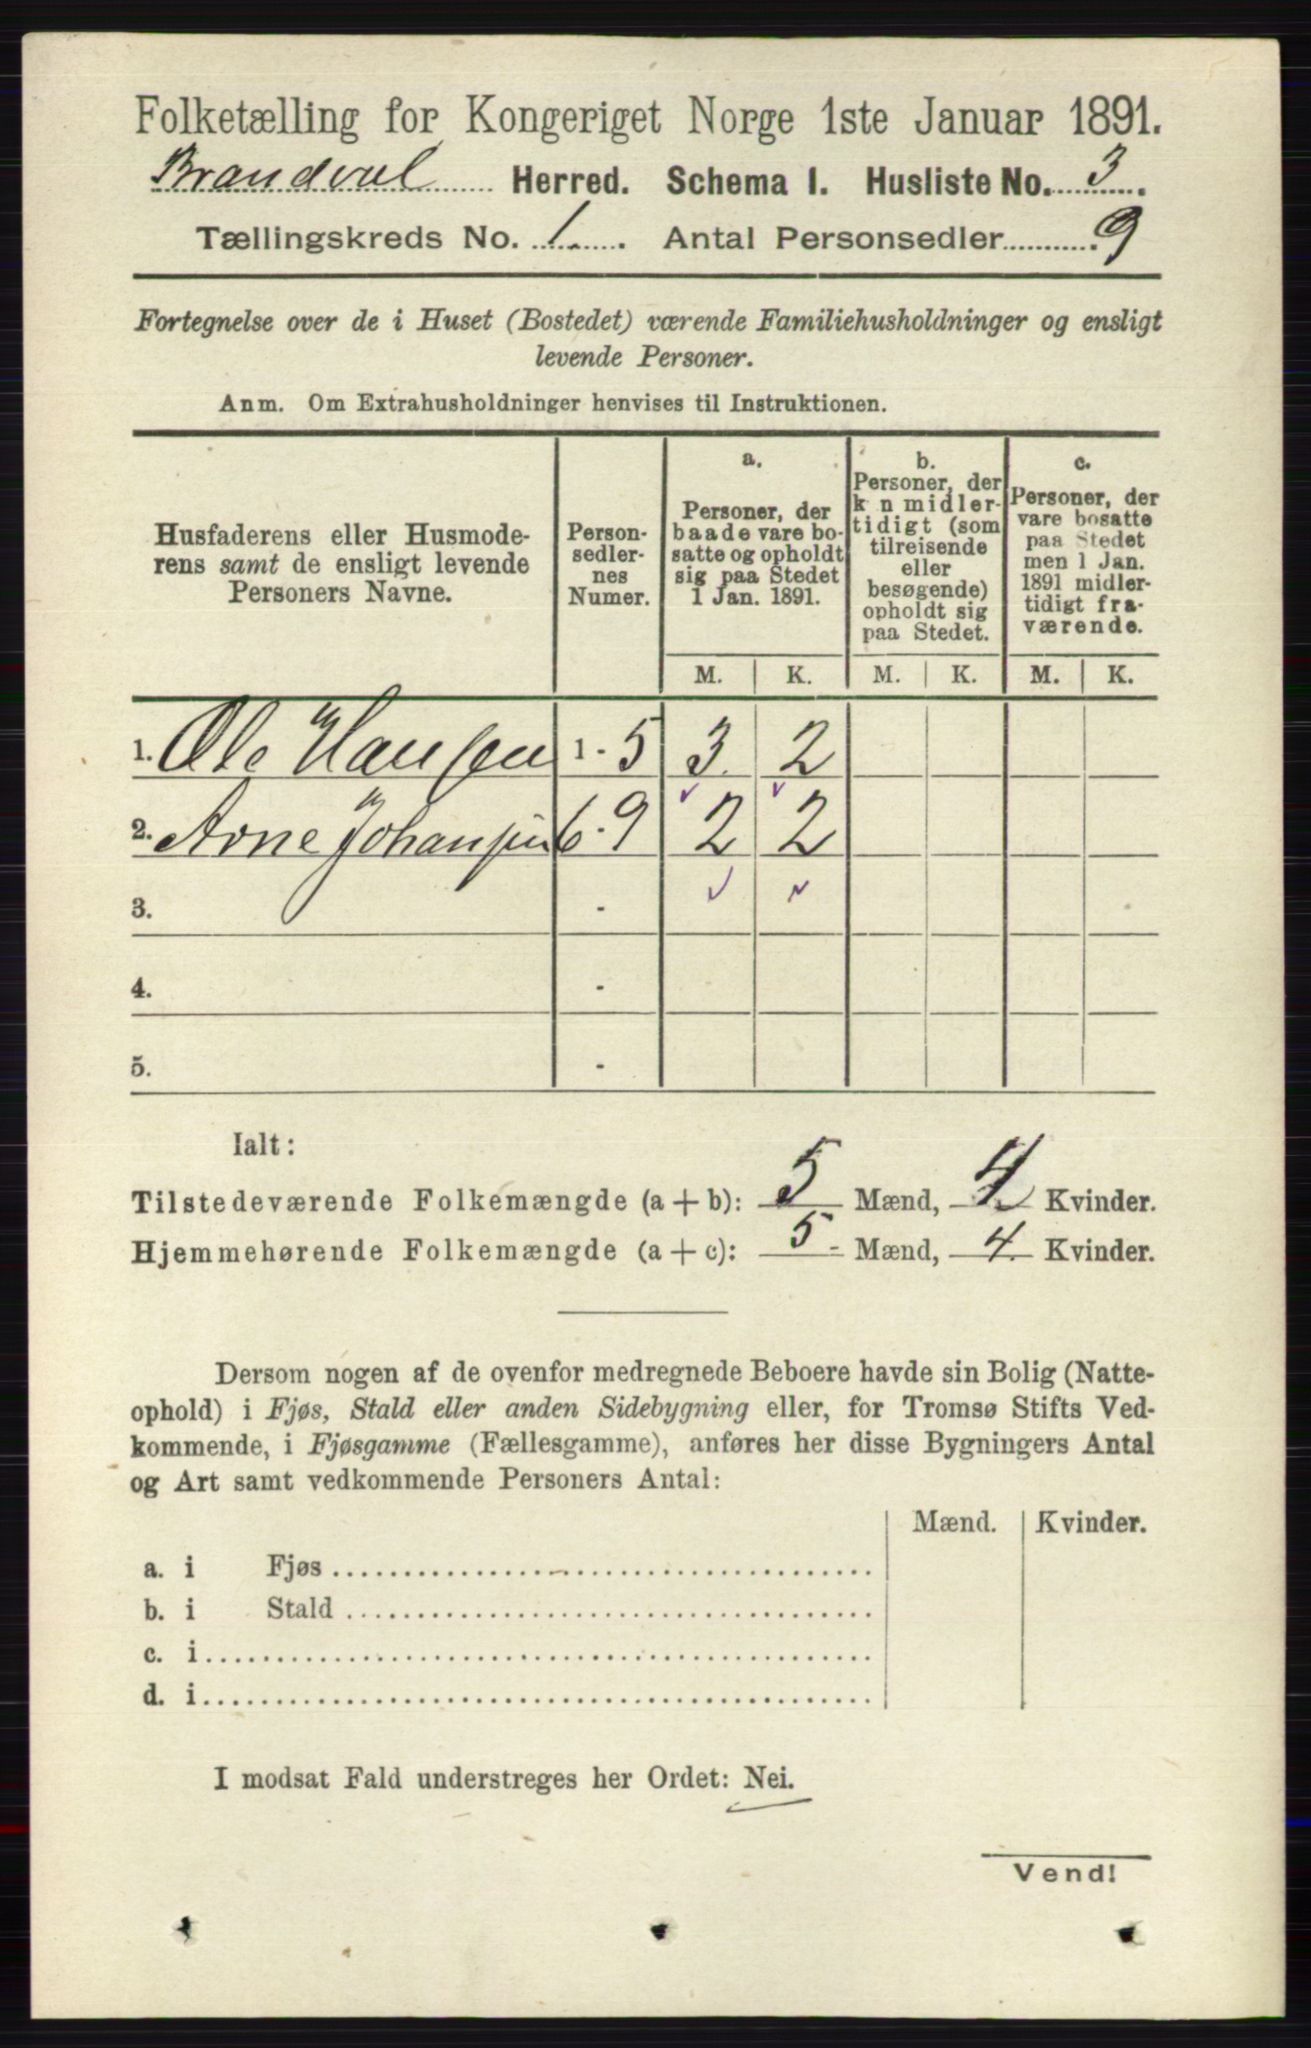 Folketælling for Kongeriget Norge 1ste Januar 1891.
Brandval Herred. Schema I. Husliste No. 3.
Tællingskreds No. 1. Antal Personsedler 9
Fortegnelse over de i Huset (Bostedet) værende Familiehusholdninger og ensligt
levende Personer.
Anm. Om Extrahusholdninger henvises til Instruktionen.
Husfaderens eller Husmode-
rens samt de ensligt levende
Personers Navne.
Person-
sedler-
nes
Numer.
a.
Personer, der
baade vare bo-
satte og opholdt
sig paa Stedet
1 Jan. 1891.
b.
Personer, der
k n midler-
tidigt (som
tilreisende
eller
besøgende)
opholdt sig
paa Stedet.
c.
Personer, der
vare bosatte
paa Stedet
men 1 Jan.
1891 midler-
tidigt fra-
værende.
M. K. M. K. M. K.
1. Ole Hansen 1 - 5 3 2
2. Arne Johansen 6 - 9 2 2
3. -
4. -
5. -
Ialt:
Tilstedeværende Folkemængde (a + b): 5 Mænd, 4 Kvinder.
Hjemmehørende Folkemængde (a + c): 5 - Mænd, 4. Kvinder.
Dersom nogen af de ovenfor medregnede Beboere havde sin Bolig (Natte-
ophold) i Fjøs, Stald eller anden Sidebygning eller, for Tromsø Stifts Ved-
kommende, i Fjøsgamme (Fællesgamme), anføres her disse Bygningers Antal
og Art samt vedkommende Personers Antal:
Mænd. Kvinder.
a. i Fjøs
b. i Stald
c. i
d. i
I modsat Fald understreges her Ordet: Nei.
Vend!